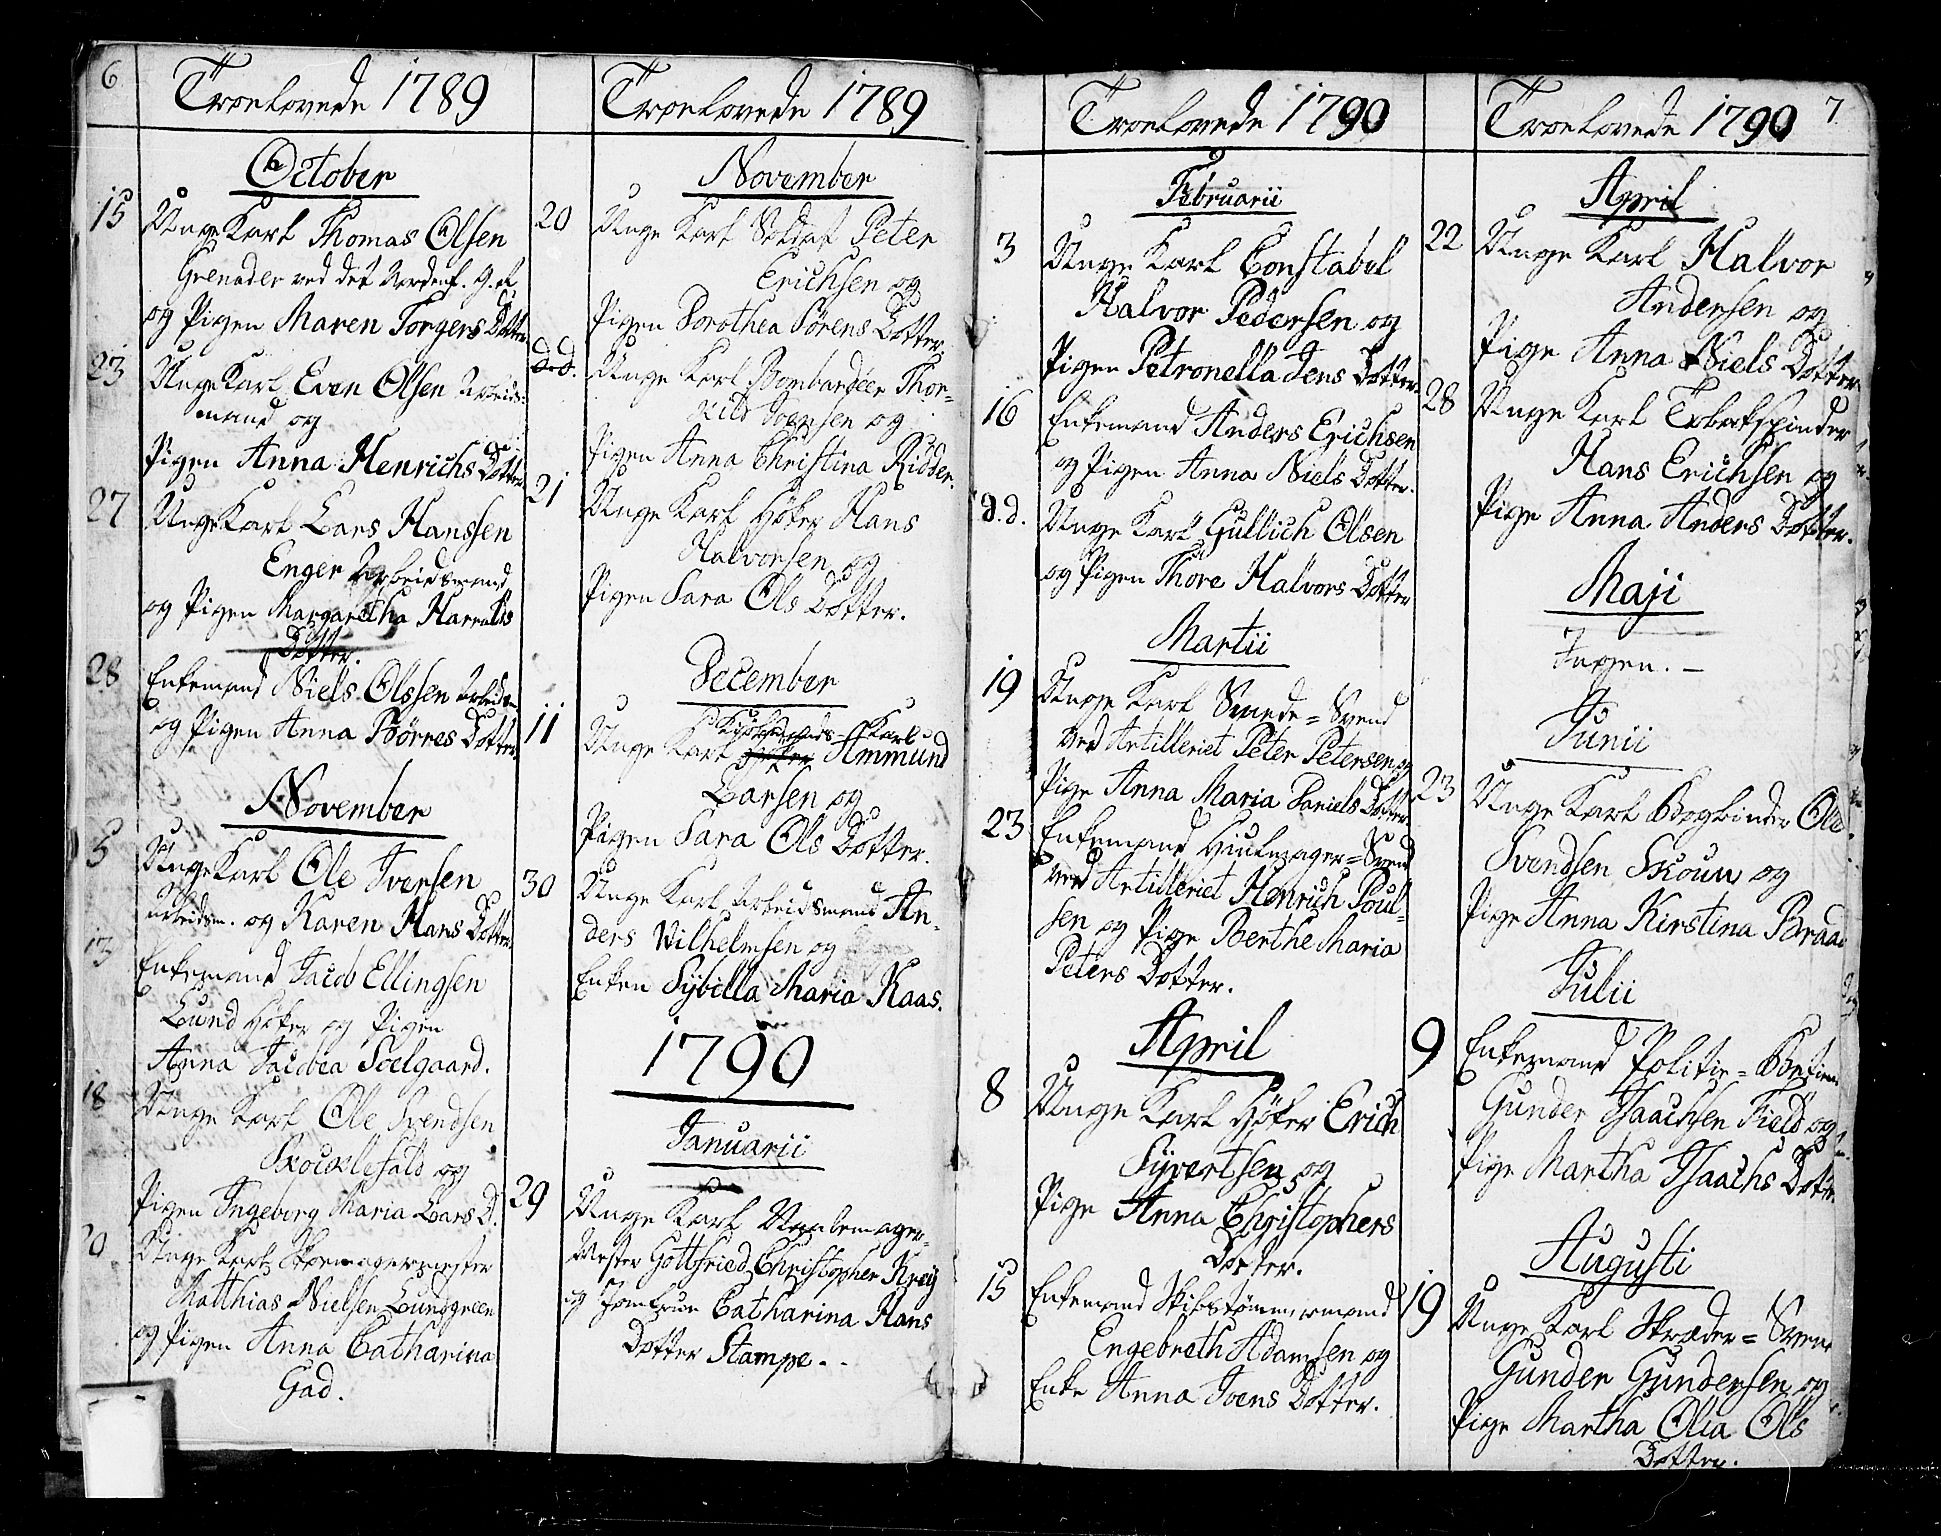 6
Troelovede 1789
October
15 Unge Karl Thomas Olsen
Grenader ved det Nordenf. g. R.
og Pigen Maren Torgers Dotter
23 Unge Karl Even Olsen Arbeids-
mand og
Pigen Anna Henrichs Dotter
27 Unge Karl Lars Hanssen
Enger Arbeidsmand
og Pigen Margaretha Harralds
Dotter.
28 Enkemand Niels Olssen Arbeidsm
og Pigen Anna Börres Dotter
November
5 Unge Karl Ole Iversen
Arbeidsm. og Karen Hans Dotter
13 Enkemand Jacob Ellingsen
Lund Höker og Pigen
Anna Jacobea Soelgaard.
18 Unge Karl Ole Svendsen
og
Pigen Ingeborg Maria Lars D.
20 Unge Karl Skoemagermester
Matthias Nielsen Lundgreen
og Pigen Anna Catharina
Gad.
Troelovede 1789
November
20 Unge Karl Soldat Peter
Erichsen og
Pigen Dorothea Sörens Dotter
d.d. Unge Karl Bombardeer Thor-
kild Svensen og
Pigen Anna Christina Ridder.
21 Unge Karl Höker Hans
Halvorsen og
Pigen Sara Ols Dotter.
December
Kiöbmands Karl
11 Unge Karl Höker Ammund
Larsen og
Pigen Sara Ols Dotter.
30 Unge Karl Arbeidsmand An-
ders Wilhelmsen og
Enken Sybilla Maria Kaas.
1790
Januarii
29 Unge Karl
Mester Gottfried Christopher Kreij
og Jomfrue Catharina Hans
Dotter Stampe.
Troelovede 1790
Februarii
3 Unge Karl Constabel
Halvor Pedersen og
Pigen Petronella Jens Dotter
16 Enkemand Anders Erichsen
og Pigen Anna Niels Dotter.
d.d. Unge Karl Gullich Olsen
og Pigen Thore Halvors Dotter
Martii
19 Unge Karl Smede=Svend
ved Artilleriet Peter Petersen og
Pige Anna Maria Daniels Dotter
23 Enkemand Hiulmager=Svend
ved Artilleriet Henrich Poul-
sen og Pige Berthe Maria
Peters Dotter.
April
8 Unge Karl Höker Erich
Syvertsen og
Pige Anna Christophers
Dotter.
15 Enkemand Skibstömmermand
Engebreth Adamsen og
Enke Anna Ivens Dotter.
Troelovede 1790 7
April
22 Unge Karl Halvor
Andersen og
Pige Anna Niels Dotter
28 Unge Karl Tobakspinder
Hans Erichsen og
Pige Anna Anders Dotter.
Maji
Ingen. —
Junii
23 Unge Karl Bogbinder Ole
Svendsen Skouw og
Pige Anna Kirstina Braa
Julii
9 Enkemand Politie=Betient
Gunder Isaachsen Field og
Pige Martha Isaachs Dotter
Augusti
19 Unge Karl Skræder=Svend
Gunder Gundersen og
Pige Martha Olea Ols
Dotter.